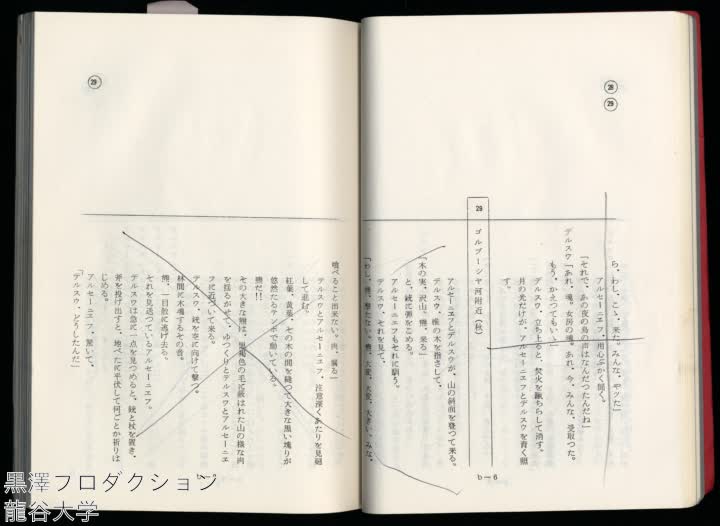 28
29
ら、わし、こゝ、来た。みんな、やった」
アルセーニエフ、用心ぶかく聞く。
「それで、あの夜の鳥の声はなんだつたんだね」
デルスウ「あれ、魂。女房の魂。あれ、今、みんな、受取つた。
もう、かえつてもいゝ」
デルスウ、立ち上ると、焚火を蹴ちらして消す。
月の光だけが、アルセーニエフとデルスウを青く照
す。
29 ゴルブーシヤ河附近（秋）
アルセーニエフとデルスウが、山の斜面を登つて来る。
デルスウ、椎の木を指さして、
「木の実、沢山、熊、来る」
と、銃に弾をこめる。
アルセーニエフもそれに倣う。
デルスウ、それを見て、
「わし、熊、撃たない。熊、大変、大変、大きい。みな、
b—6
29
喰べること出来ない。肉、腐る」
デルスウとアルセーニエフ、注意深くあたりを見廻
して進む。
紅葉、黄葉、その木の間を縫つて大きな黒い塊りが
悠然たるテンポで動いている。
熊だ!!
その大きな熊は、黒褐色の毛に蔽はれた山の様な肉
を揺るがせて、ゆつくりとデルスウとアルセーニエ
フに近づいて来る。
デルスウ、銃を空に向けて撃つ。
林間に木魂するその音。
熊、一目散に逃げ去る。
それを見送つているアルセーニエフ。
デルスウは急に一点を見つめると、銃と杖を置き、
斧を投げ出すと、地べたに平伏して何ごとか祈りは
じめる。
アルセーニエフ、驚いて、
「デルスウ、どうしたんだ」
黒澤プロダクション
龍谷大学